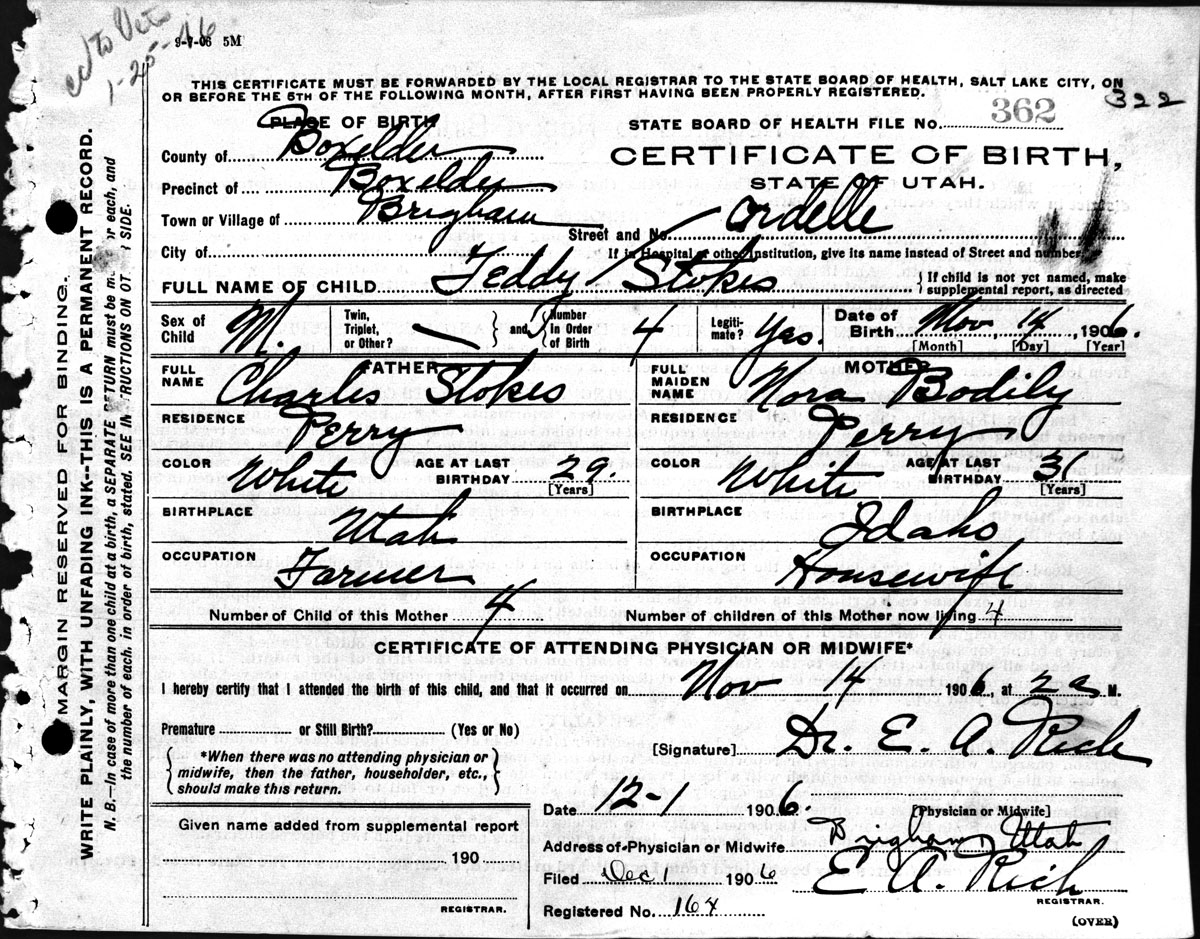 9-7-06 5M
1-25-46
THIS CERTIFICATE MUST BE FORWARDED BY THE LOCAL REGISTRAR TO THE STATE BOARD OF HEALTH, SALT LAKE CITY, ON
OR BEFORE THE 5TH OF THE FOLLOWING MONTH, AFTER FIRST HAVING BEEN PROPERLY REGISTERED.
322
PLACE OF BIRTH
STATE BOARD OF HEALTH FILE No. 362
County of Boxelder
CERTIFICATE OF BIRTH,
Precinct of Boxelder
STATE OF UTAH.
Town or Village of Brigham
Street and No.
Ordelle
City of
If in Hospital or other institution, give its name instead of Street and number
FULL NAME OF CHILD Teddy / Stokes
If child is not yet named, make
supplemental report, as directed
Sex of Child M.
Twin, Triplet, or Other?
and
Number In Order of Birth 4
Legiti-mate? Yes.
Date of Birth Nov 14, 1906.
[Month] [Day] [Year]
FATHER
MOTHER
FULL NAME Charles Stokes
FULL MAIDEN NAME Nora Bodily
RESIDENCE Perry
RESIDENCE Perry
COLOR White AGE AT LAST BIRTHDAY 29. [Years]
COLOR White AGE AT LAST BIRTHDAY 31 [Years]
BIRTHPLACE Utah
BIRTHPLACE Idaho
OCCUPATION Farmer
OCCUPATION Housewife
Number of Child of this Mother 4
Number of children of this Mother now living 4
CERTIFICATE OF ATTENDING PHYSICIAN OR MIDWIFE*
I hereby certify that I attended the birth of this child, and that it occurred on Nov 14 1906, at 2 a M.
Premature or Still Birth? (Yes or No)
[Signature] Dr. E. A. Rich
*When there was no attending physician or
midwife, then the father, householder, etc.,
should make this return.
Date 12-1 1906.
[Physician or Midwife]
Given name added from supplemental report
190
REGISTRAR.
Address of Physician or Midwife Brigham, Utah
Filed Dec 1 1906
E A. Rich
REGISTRAR.
Registered No. 164
(OVER)
MARGIN RESERVED FOR BINDING.
WRITE PLAINLY, WITH UNFADING INK--THIS IS A PERMANENT RECORD.
N. B.—In case of more than one child at a birth, a SEPARATE RETURN must be m or each, and
the number of each, in order of birth, stated. SEE IN RUCTIONS ON OT R SIDE.